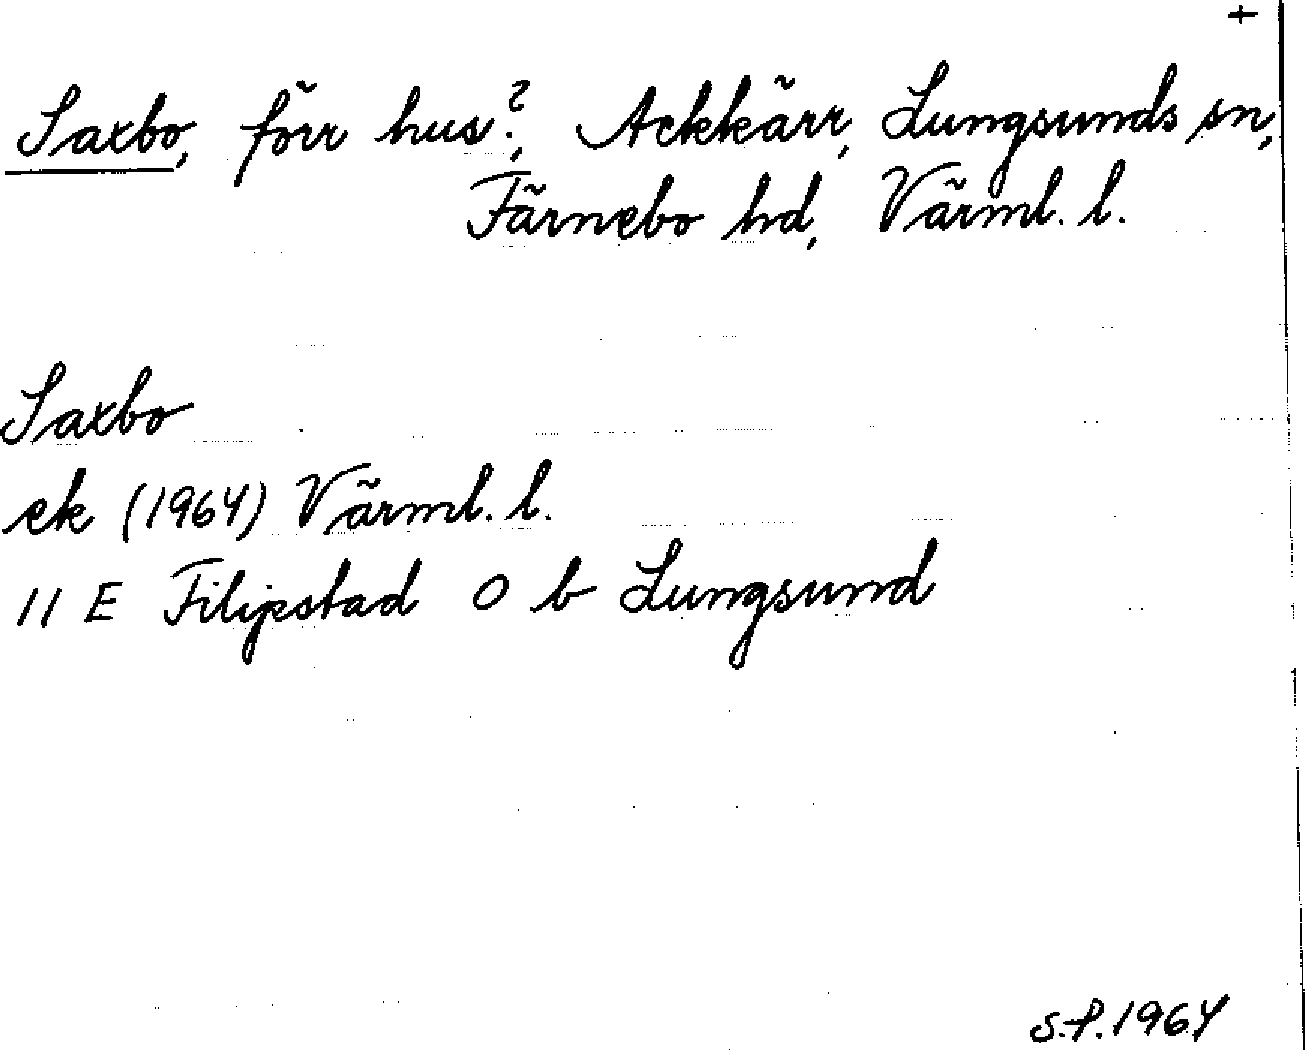 +
Saxbo, förr hus?, Ackkärr, Lungsunds sn,
Färnebo hd, Värml. l.
Saxbo
ek (1964) Värml. l.
11 E Filipstad 0 b Lungsund
S.f. 1964